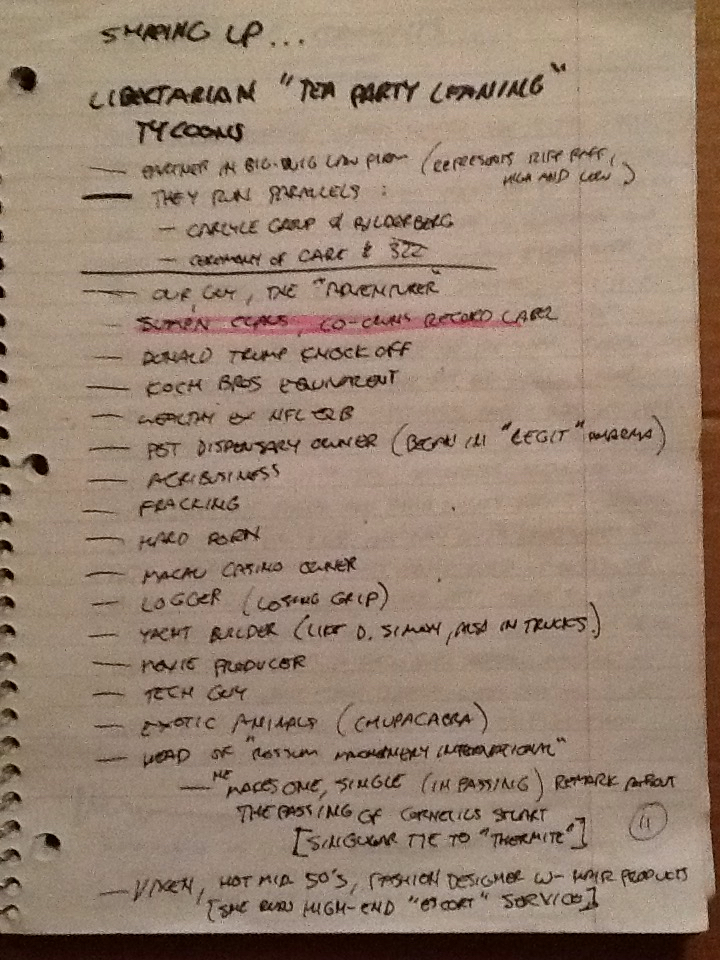 SHAPING UP...
LIBERTARIAN "TEA PARTY LEANING"
TYCOONS
— PARTNER IN BIG-WIG LAW FIRM (REPRESENTS RIFF RAFF,
HIGH AND LOW)
— THEY RUN PARALLELS:
— CARLYLE GROUP & BILDERBERG
— CEREMONY OF CARE & 322
— OUR GUY, THE "ADVENTURER"
— CO-OWNS RECORD LABEL
— DONALD TRUMP KNOCK OFF
— KOCH BROS EQUIVALENT
— WEALTHY EX NFL QB
— POT DISPENSARY OWNER (BEGAN IN "LEGIT" PHARMA)
— AGRIBUSINESS
— FRACKING
— HARD PORN
— MACAU CASINO OWNER
— LOGGER (LOSING GRIP)
— YACHT BUILDER (LIKE D. SIMON, ALSO IN TRUCKS.)
— MOVIE PRODUCER
— TECH GUY
— EXOTIC ANIMALS (CHUPACABRA)
— HEAD OF "ROSSUM MACHINERY INTERNATIONAL"
— HE MAKES ONE, SINGLE (IN PASSING) REMARK ABOUT
THE PASSING OF CORNELIUS STUART
[SINGULAR TIE TO "THERMITE"]
11
— VIXEN, HOT MID 50'S, FASHION DESIGNER W- HAIR PRODUCTS
[SHE RUNS HIGH-END "ESCORT" SERVICE]